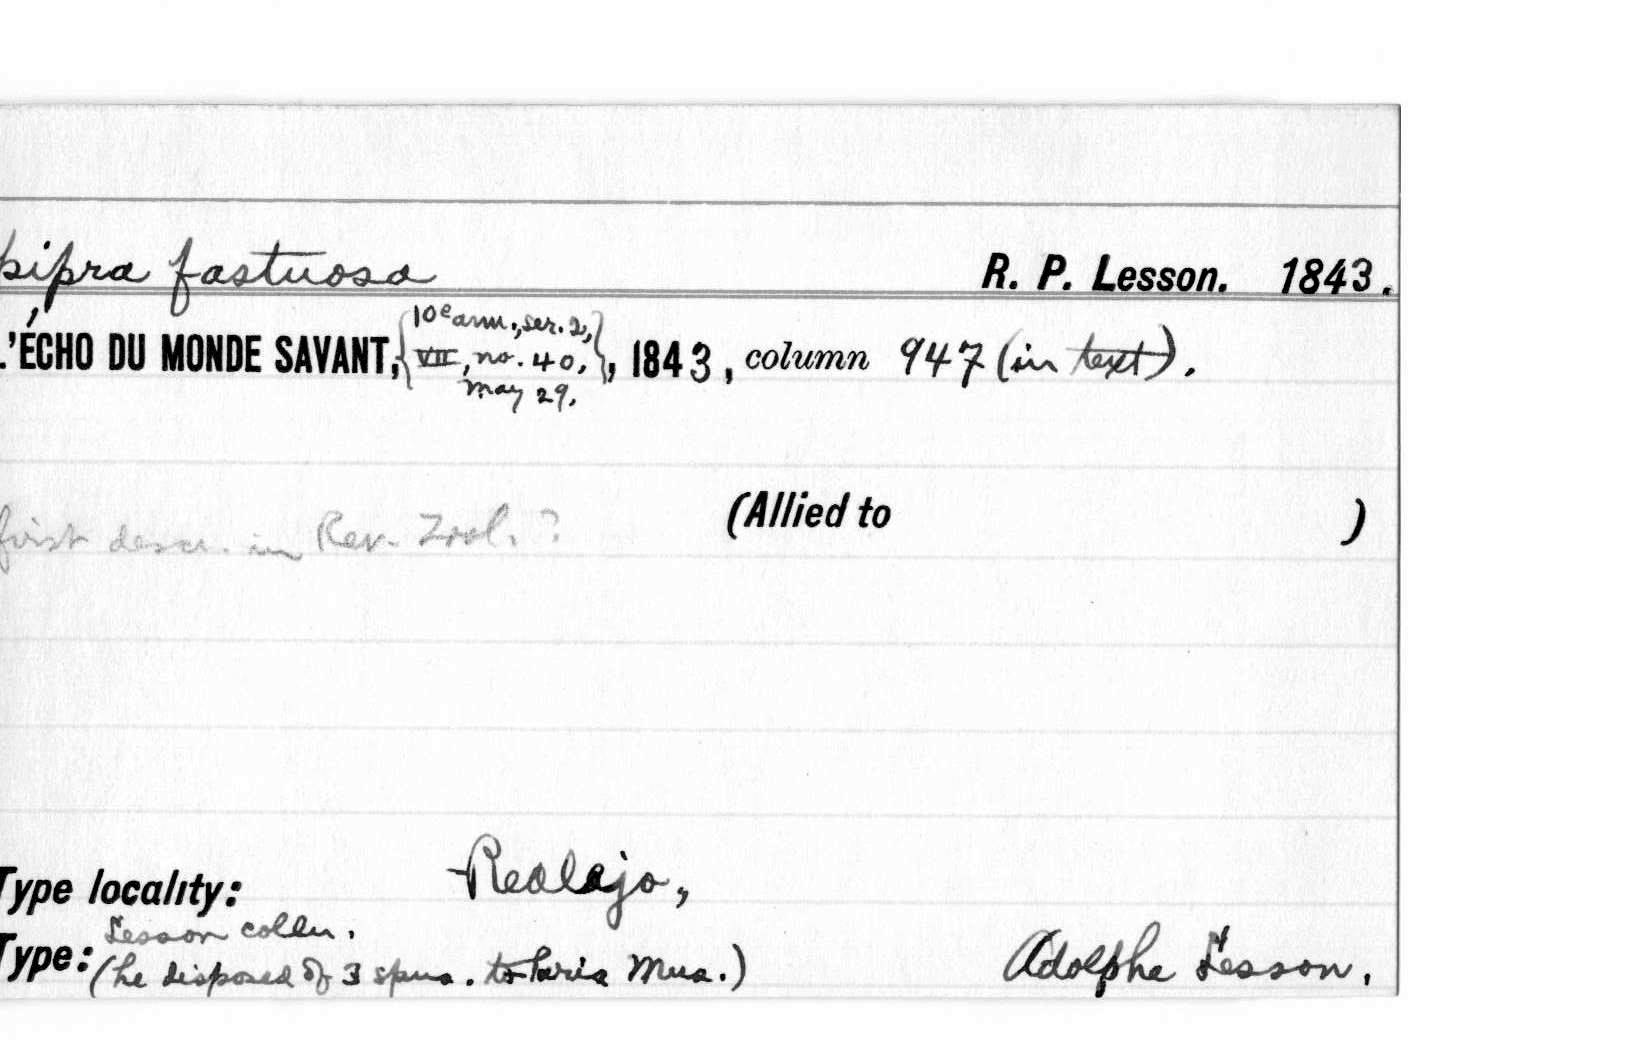 pipra fastuosa R. P. Lesson. 1843.
L'ÉCHO DU MONDE SAVANT, {10e ann., ser. 2, VII, no. 40, May 29,}, 1843, column 947 (in text).
first descr. in Rev. Zool. ? (Allied to )
Type locality: Realejo,
Lesson colln.
Type: (he disposed of 3 spms. to Paris Mus.) Adolphe Lesson.